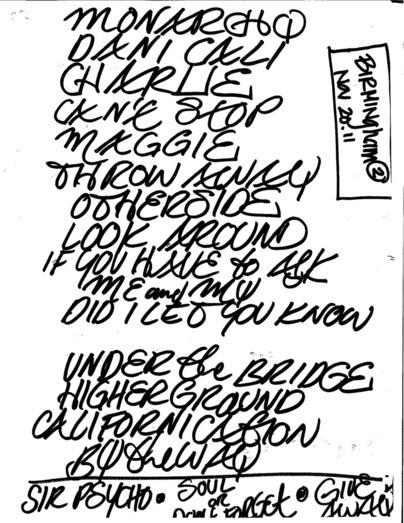 MONARCHY
DANI CALI
CHARLIE
CAN'T STOP
MAGGIE
THROW AWAY
OTHERSIDE
LOOK AROUND
IF YOU HAVE to ASK
ME and MY
DID I LET YOU KNOW
UNDER the BRIDGE
HIGHER GROUND
CALIFORNICATION
BY the WAY
SIR PSYCHO • SOUL or DON'T FORGET • GIVE AWAY
BIRMINGHAM 2
NOV 20.11